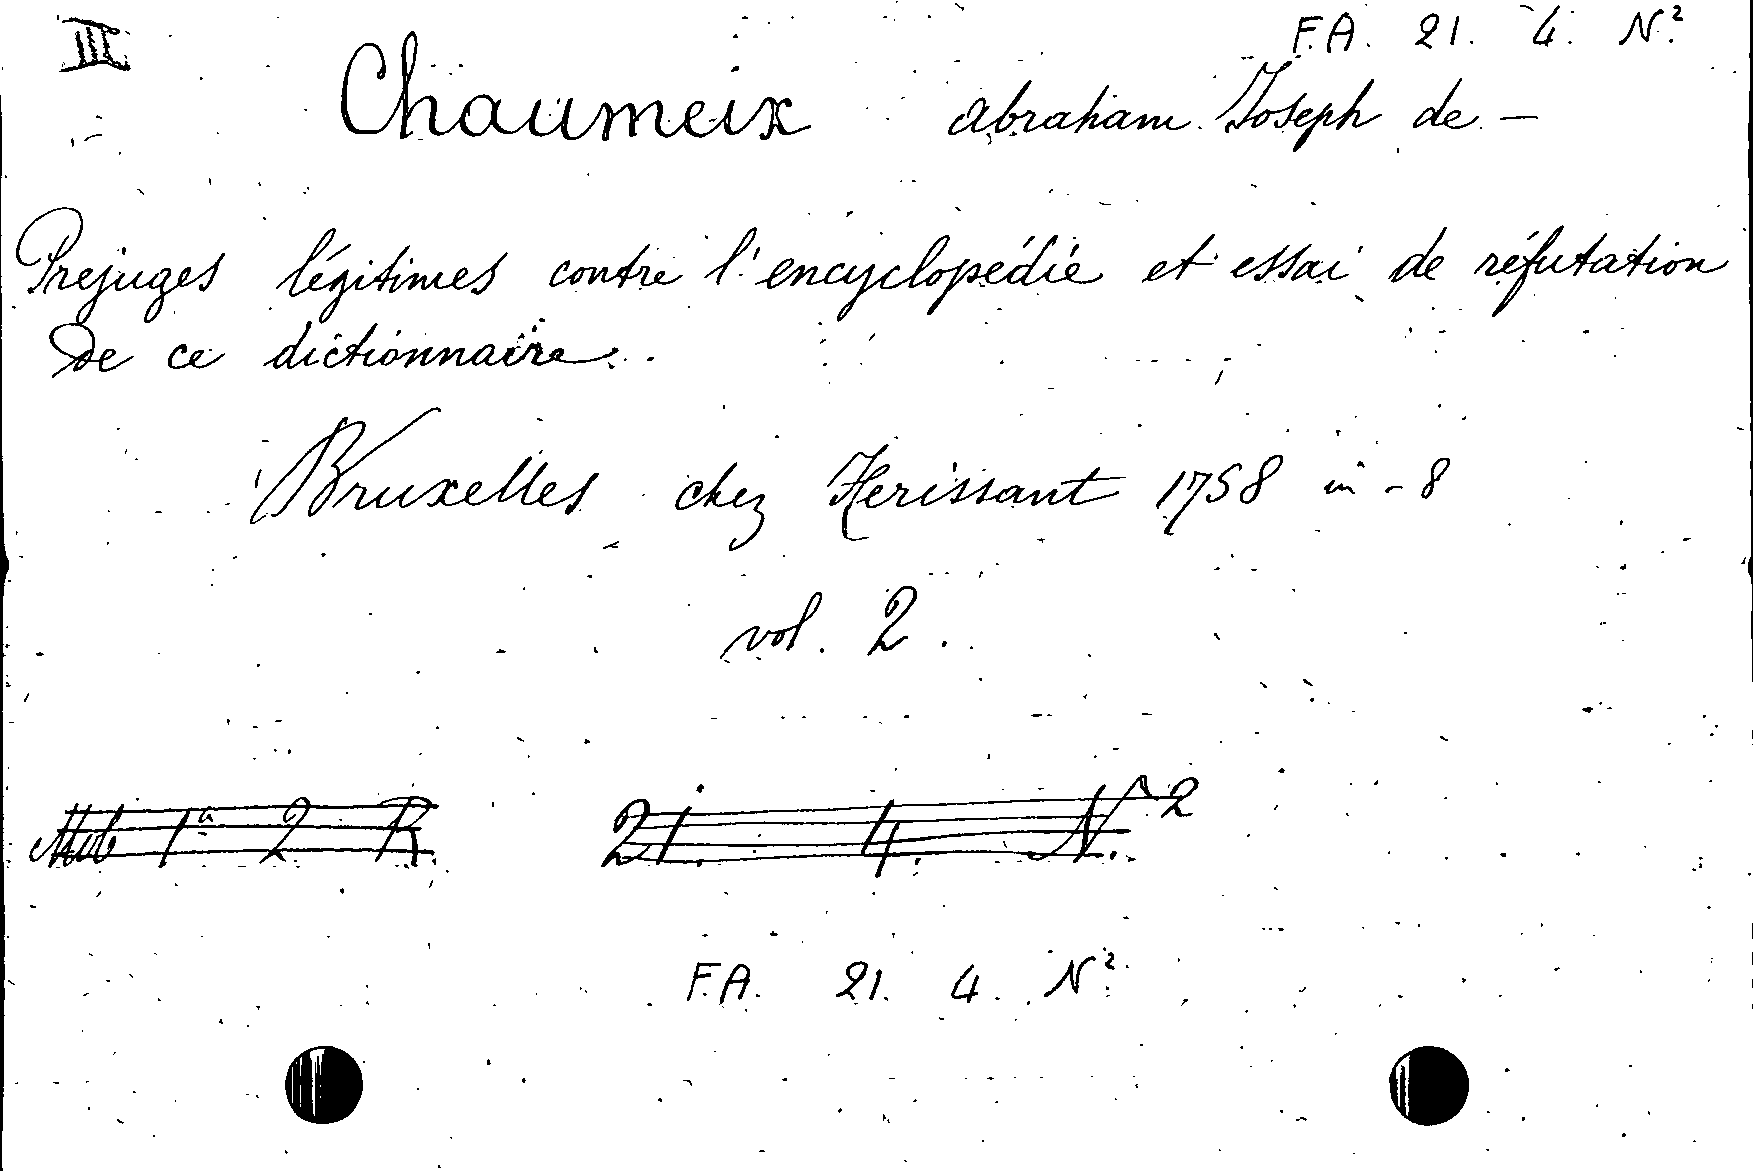 III F.A. 21. 4. N²
Chaumeix Abraham Joseph de -
Prejuges légitimes contre l'encyclopédie et essai de réfutation
De ce dictionnaire.
Bruxelles chez Herissant 1758 in-8
vol. 2.
1ª 2 R 21. 4. N.2
F.A. 21. 4. N²